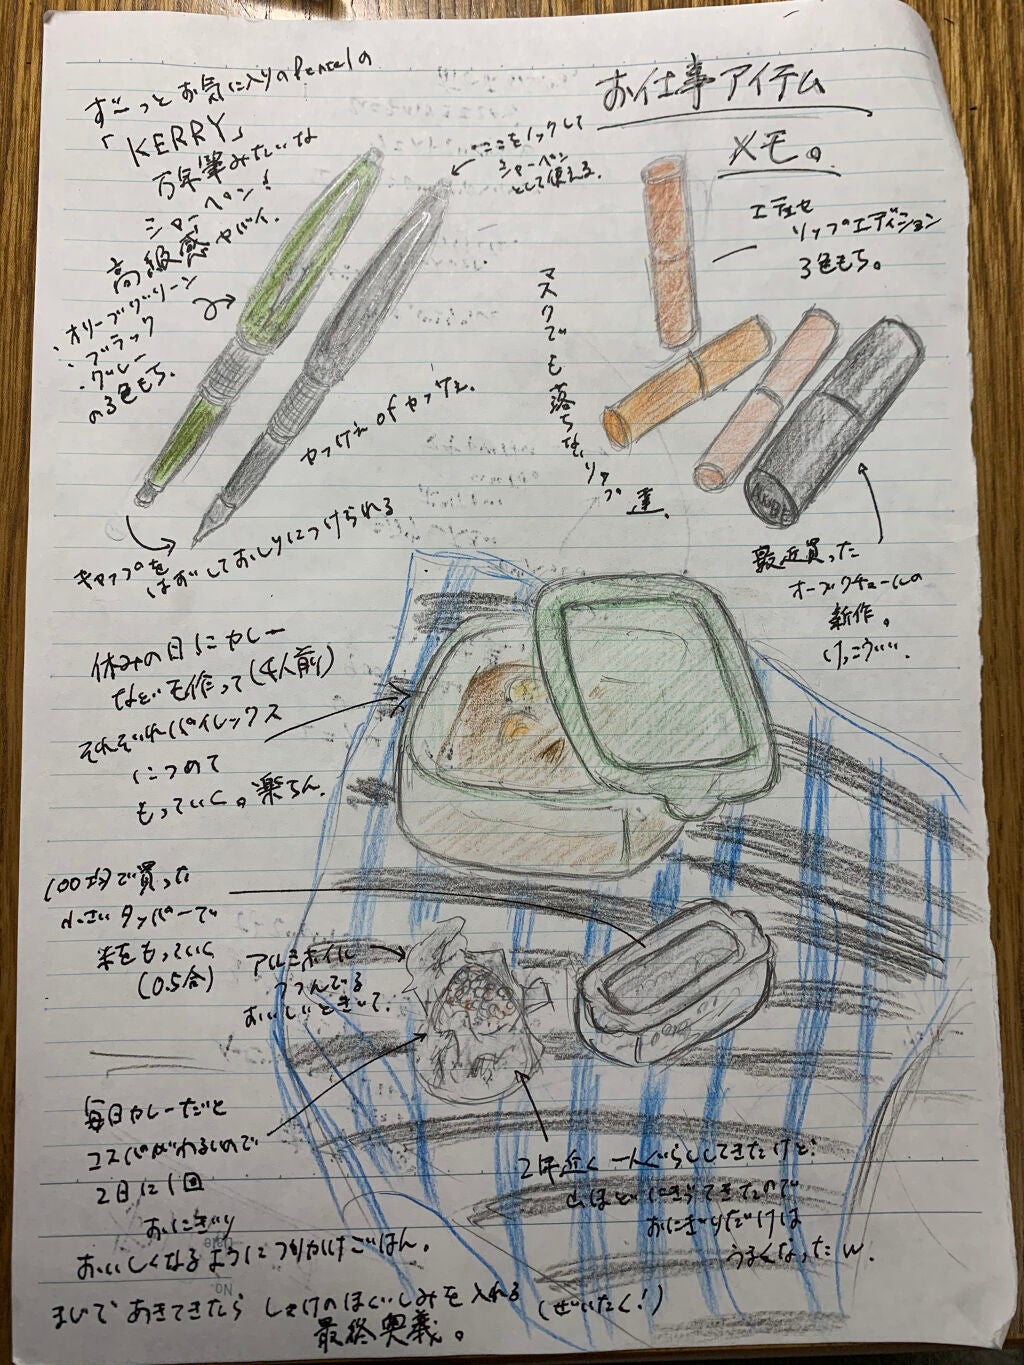 お仕事アイテム
メモ。
ず〜っとお気に入りのPentelの
「KERRY」
万年筆みたいな
シャーペン!
高級感ヤバイ。
・オリーブグリーン
・ブラック
・グレー
の3色もち。
ここをノックして
シャーペン
として使える。
かっけえ of かっけえ。
キャップを
はずしておしりにつけられる
エテュセ
リップエディション
3色もち。
マスクでも落ちないリップ達。
AUBE
最近買った
オーブクチュールの
新作。
けっこういい。
休みの日にカレー
などを作って(4人前)
それぞれパイレックス
につめて
もっていく。楽ちん。
100均で買った
小さいタッパーで
米をもっていく
(0.5合)
アルミホイル
つつんでる
おいしいときいて。
毎日カレーだと
コスパがわるいので
2日に1回
おにぎり
おいしくなるように つかかけごはん。
2年近く一人ぐらししてきたけど
山ほどにぎってきたので
おにぎりだけは
うまくなったw.
まじであきてきたら しゃけのほぐしみを入れる (ぜいたく!)
最終奥義。